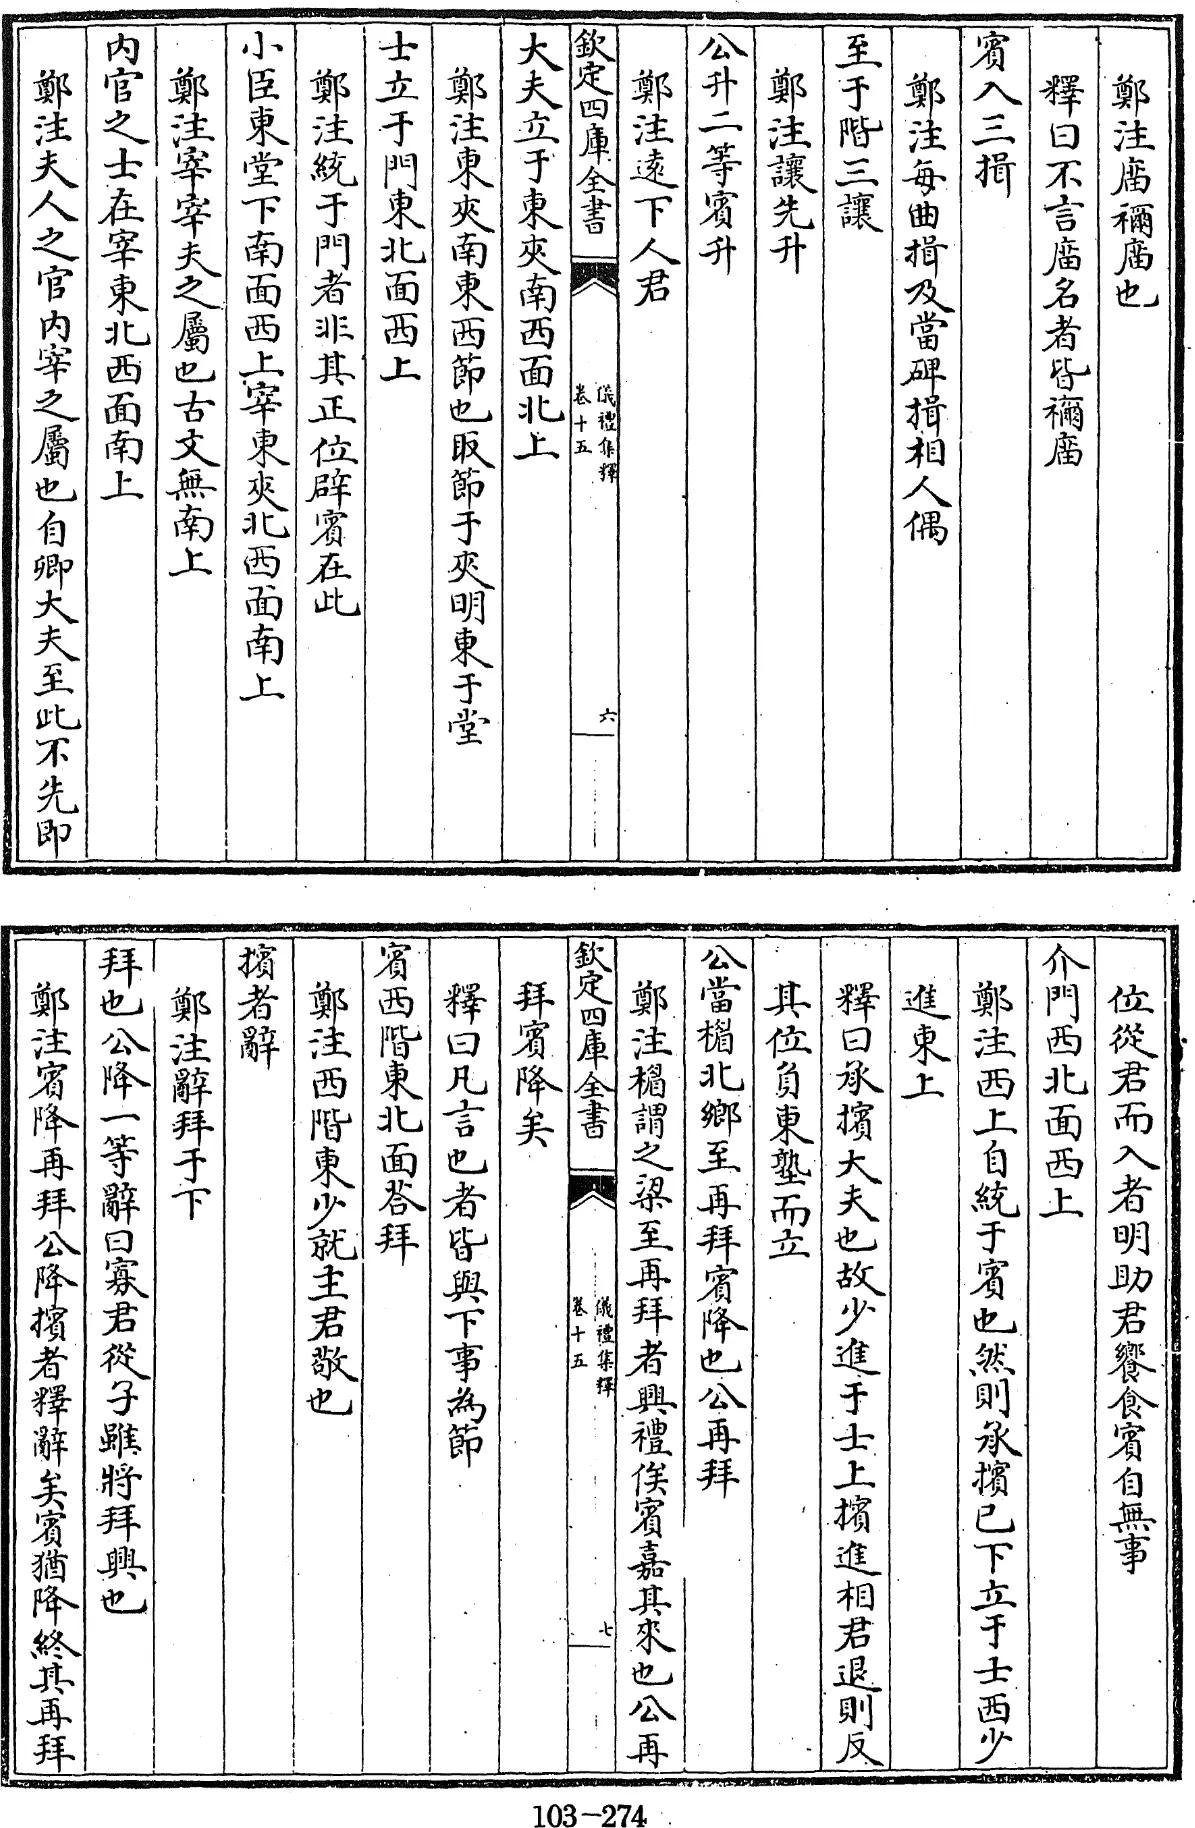 鄭注廟禰廟也
釋曰不言廟名者皆禰廟
賓入三揖
鄭注每曲揖及當碑揖相人偶
至于階三讓
鄭注讓先升
公升二等賓升
鄭注遠下人君
欽定四庫全書 儀禮集釋 卷十五 六
大夫立于東夾南西面北上
鄭注東夾南東西節也取節于夾明東于堂
士立于門東北面西上
鄭注統于門者非其正位辟賓在此
小臣東堂下南面西上宰東夾北西面南上
鄭注宰宰夫之屬也古文無南上
內官之士在宰東北西面南上
鄭注夫人之官內宰之屬也自卿大夫至此不先即
位從君而入者明助君饗食賓自無事
介門西北面西上
鄭注西上自統于賓也然則承擯已下立于士西少
進東上
釋曰承擯大夫也故少進于士上擯進相君退則反
其位負東塾而立
公當楣北鄉至再拜賓降也公再拜
鄭注楣謂之梁至再拜者興禮俟賓嘉其來也公再
欽定四庫全書 儀禮集釋 卷十五 七
拜賓降矣
釋曰凡言也者皆與下事為節
賓西階東北面荅拜
鄭注西階東少就主君敬也
擯者辭
鄭注辭拜于下
拜也公降一等辭曰寡君從子雖將拜興也
鄭注賓降再拜公降擯者釋辭矣賓猶降終其再拜
103-274